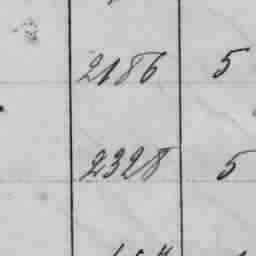 2186 5
2328 5